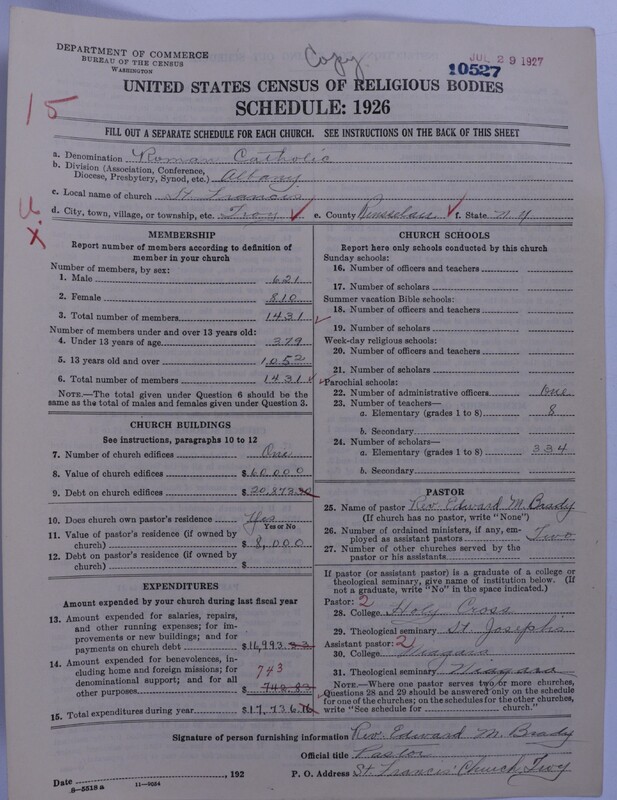 DEPARTMENT OF COMMERCE
BUREAU OF THE CENSUS
WASHINGTON
Copy
JUL 29 1927
10527
15
UNITED STATES CENSUS OF RELIGIOUS BODIES
SCHEDULE: 1926
FILL OUT A SEPARATE SCHEDULE FOR EACH CHURCH. SEE INSTRUCTIONS ON THE BACK OF THIS SHEET
a. Denomination Roman Catholic
b. Division (Association, Conference, Diocese, Presbytery, Synod, etc.) Albany
c. Local name of church St. Francis
d. City, town, village, or township, etc. Troy e. County Rensselaer f. State N.Y
MEMBERSHIP
Report number of members according to definition of
member in your church
Number of members, by sex:
1. Male 621
2. Female 810
3. Total number of members 1431
Number of members under and over 13 years old:
4. Under 13 years of age 379
5. 13 years old and over 1052
6. Total number of members 1431
NOTE.—The total given under Question 6 should be
same as the total of males and females given under Question 3.
CHURCH BUILDINGS
See instructions, paragraphs 10 to 12
7. Number of church edifices One
8. Value of church edifices $60,000
9. Debt on church edifices $20,873
10. Does church own pastor's residence Yes
Yes or No
11. Value of pastor's residence (if owned by
church) $8,000
12. Debt on pastor's residence (if owned by
church) $
EXPENDITURES
Amount expended by your church during last fiscal year
13. Amount expended for salaries, repairs,
and other running expenses; for im-
provements or new buildings; and for
payments on church debt $16,993
14. Amount expended for benevolences, in-
cluding home and foreign missions; for
denominational support; and for all
other purposes 743
$ 742.83
15. Total expenditures during year $17,736
CHURCH SCHOOLS
Report here only schools conducted by this church
Sunday schools:
16. Number of officers and teachers
17. Number of scholars
Summer vacation Bible schools:
18. Number of officers and teachers
19. Number of scholars
Week-day religious schools:
20. Number of officers and teachers
21. Number of scholars
Parochial schools:
22. Number of administrative officers One
23. Number of teachers—
a. Elementary (grades 1 to 8) 8
b. Secondary
24. Number of scholars—
a. Elementary (grades 1 to 8) 334
b. Secondary
PASTOR
25. Name of pastor Rev. Edward M. Brady
(If church has no pastor, write "None")
26. Number of ordained ministers, if any, em-
ployed as assistant pastors Two
27. Number of other churches served by
the pastor or his assistants
If pastor (or assistant pastor) is a graduate of a college or
theological seminary, give name of institution below. (If
not a graduate, write "No" in the space indicated.)
Pastor: 2
28. College Holy Cross
29. Theological seminary St. Josephs
Assistant pastor: 2
30. College Niagara
31. Theological seminary Niagara
NOTE.—Where one pastor serves two or more churches,
Questions 28 and 29 should be answered only on the schedule
for one of the churches; on the schedules for the other churches,
write "See schedule for ............ church."
Signature of person furnishing information Rev. Edward M. Brady
Official title Pastor
Date ............, 192 P. O. Address St. Francis' Church, Troy
8-5518 a 11-9054